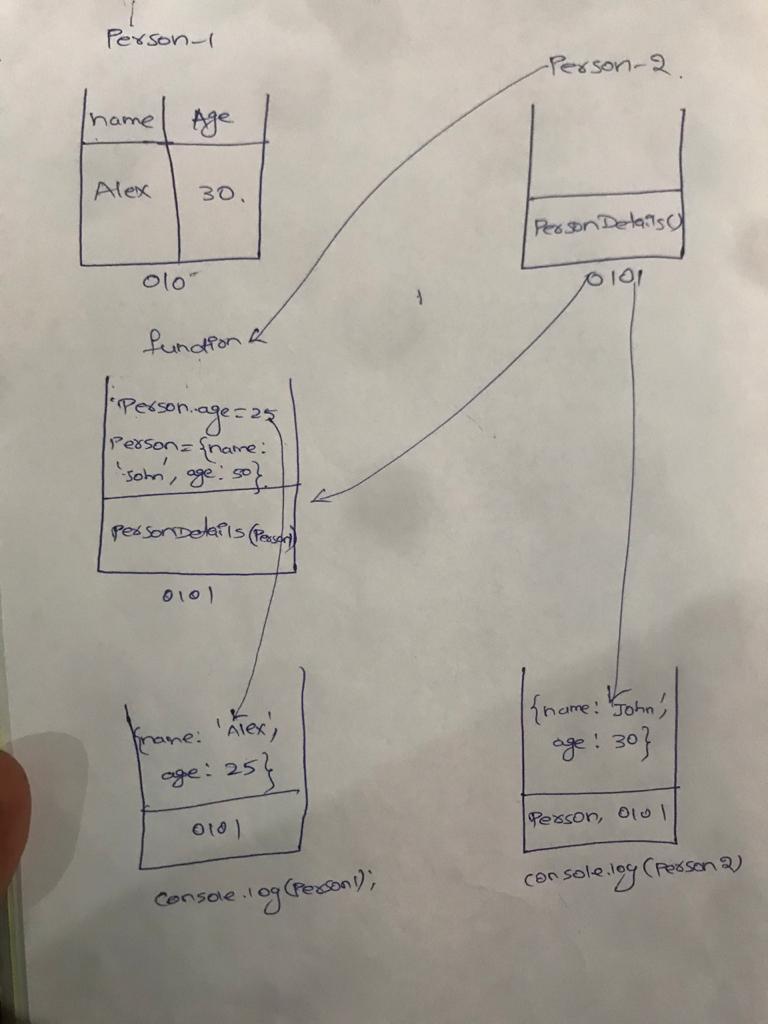 Person-1
Person-2.
name Age
Alex 30.
010
PersonDetails()
0101
function
Person.age=25
Person={name:
'John', age: 50}
PersonDetails(Person)
0101
{name: 'Alex',
age: 25}
0101
console.log(Person1);
{name: 'John',
age: 30}
Person, 0101
console.log(Person2)